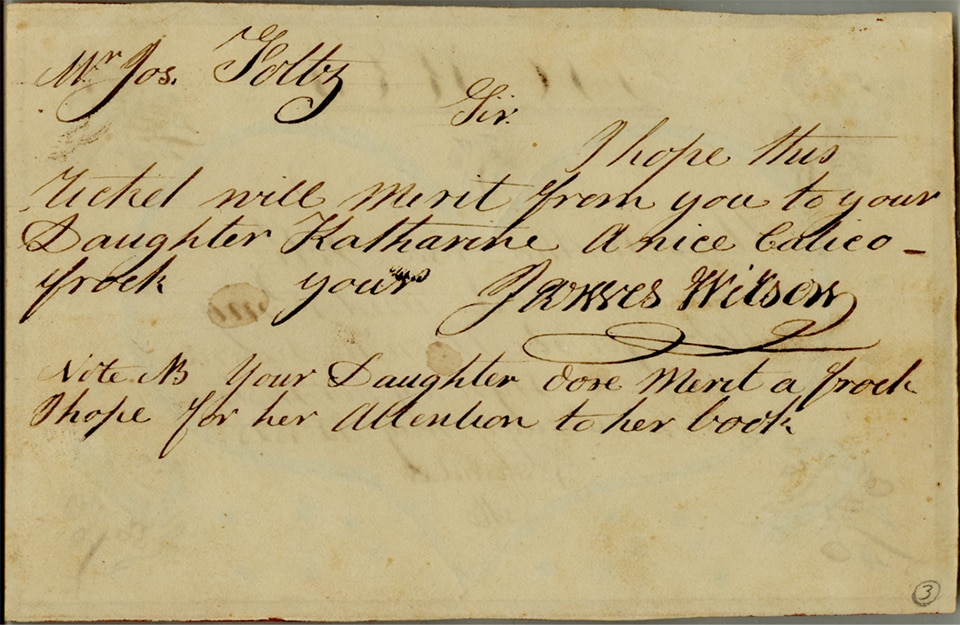 Mr Jos. Foltz
Sir.
I hope this
Ticket will Merit from you to your
Daughter Katharine A nice Calico -
frock yours James Wilson
Note NB Your Daughter dose Merit a frock
I hope for her Attention to her book
3